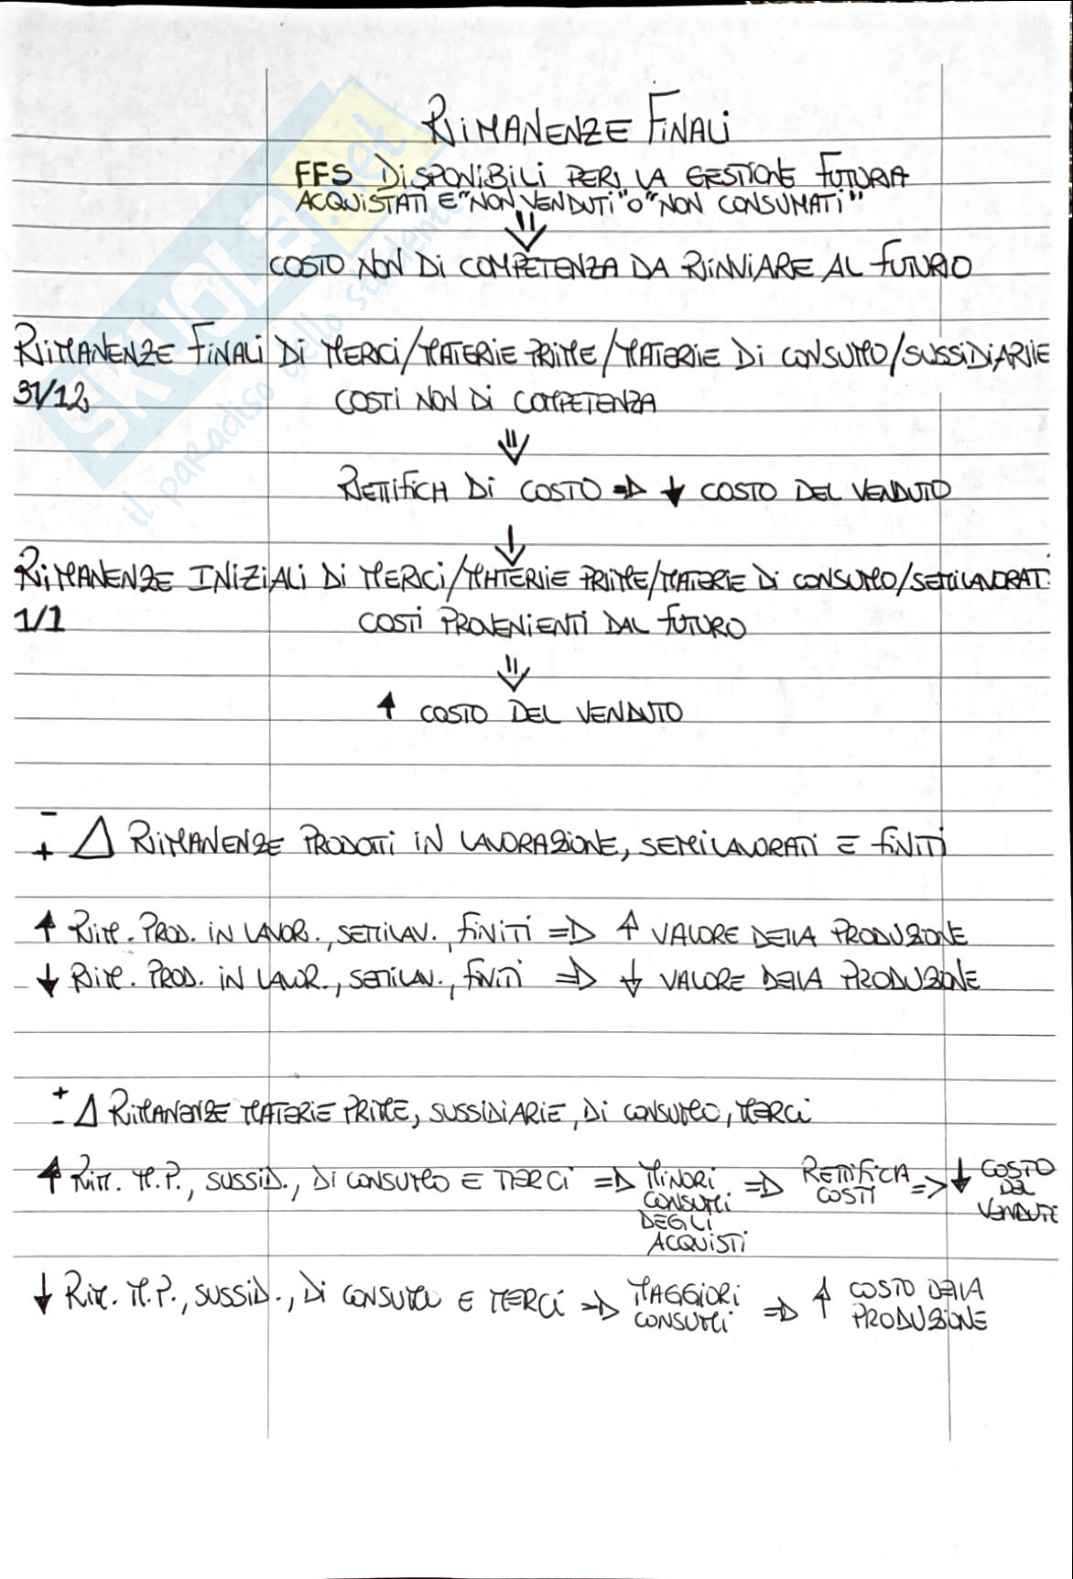 RIMANENZE FINALI
FFS DISPONIBILI PER LA GESTIONE FUTURA
ACQUISTATI E "NON VENDUTI" O "NON CONSUMATI"
⇓
COSTO NON DI COMPETENZA DA RINVIARE AL FUTURO
RIMANENZE FINALI DI MERCI/MATERIE PRIME/MATERIE DI CONSUMO/SUSSIDIARIE
31/12 COSTI NON DI COMPETENZA
⇓
RETTIFICH DI COSTO ⇒ ↓ COSTO DEL VENDUTO
↓
RIMANENZE INIZIALI DI MERCI/MATERIE PRIME/MATERIE DI CONSUMO/SEMILAVORATI
1/1 COSTI PROVENIENTI DAL FUTURO
⇓
↑ COSTO DEL VENDUTO
- + Δ RIMANENZE PRODOTTI IN LAVORAZIONE, SEMILAVORATI E FINITI
↑ RIM. PROD. IN LAVOR., SEMILAV., FINITI ⇒ ↑ VALORE DELLA PRODUZIONE
↓ RIM. PROD. IN LAVOR., SEMILAV., FINITI ⇒ ↓ VALORE DELLA PRODUZIONE
+ - Δ RIMANENZE MATERIE PRIME, SUSSIDIARIE, DI CONSUMO, MERCI
↑ RIM. M.P., SUSSID., DI CONSUMO E MERCI ⇒ MINORI CONSUMI DEGLI ACQUISTI ⇒ RETTIFICA COSTI => ↓ COSTO DEL VENDUTO
↓ RIM. M.P., SUSSID., DI CONSUMO E MERCI ⇒ MAGGIORI CONSUMI ⇒ ↑ COSTO DELLA PRODUZIONE
SKUOLA.net
il paradiso dello studente